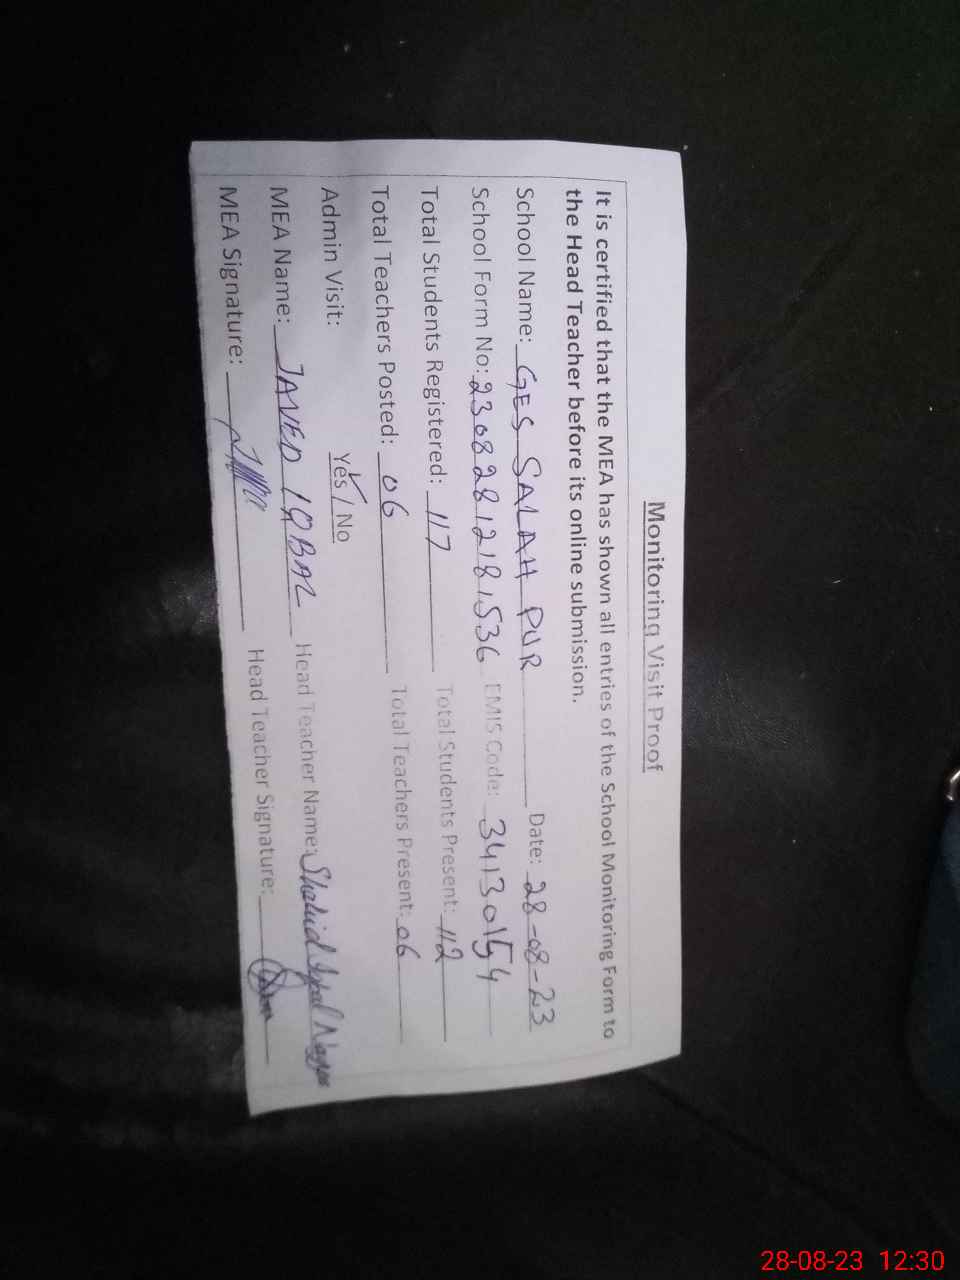 Monitoring Visit Proof
It is certified that the MEA has shown all entries of the School Monitoring Form to
the Head Teacher before its online submission.
School Name: GES SALAH PUR Date: 28-08-23
School Form No: 23082812181536 EMIS Code: 34130154
Total Students Registered: 117 Total Students Present: 112
Total Teachers Posted: 06 Total Teachers Present: 06
Admin Visit: Yes / No
MEA Name: JAVED IQBAL Head Teacher Name: Shahid Iqbal
MEA Signature: Head Teacher Signature:
28-08-23 12:30